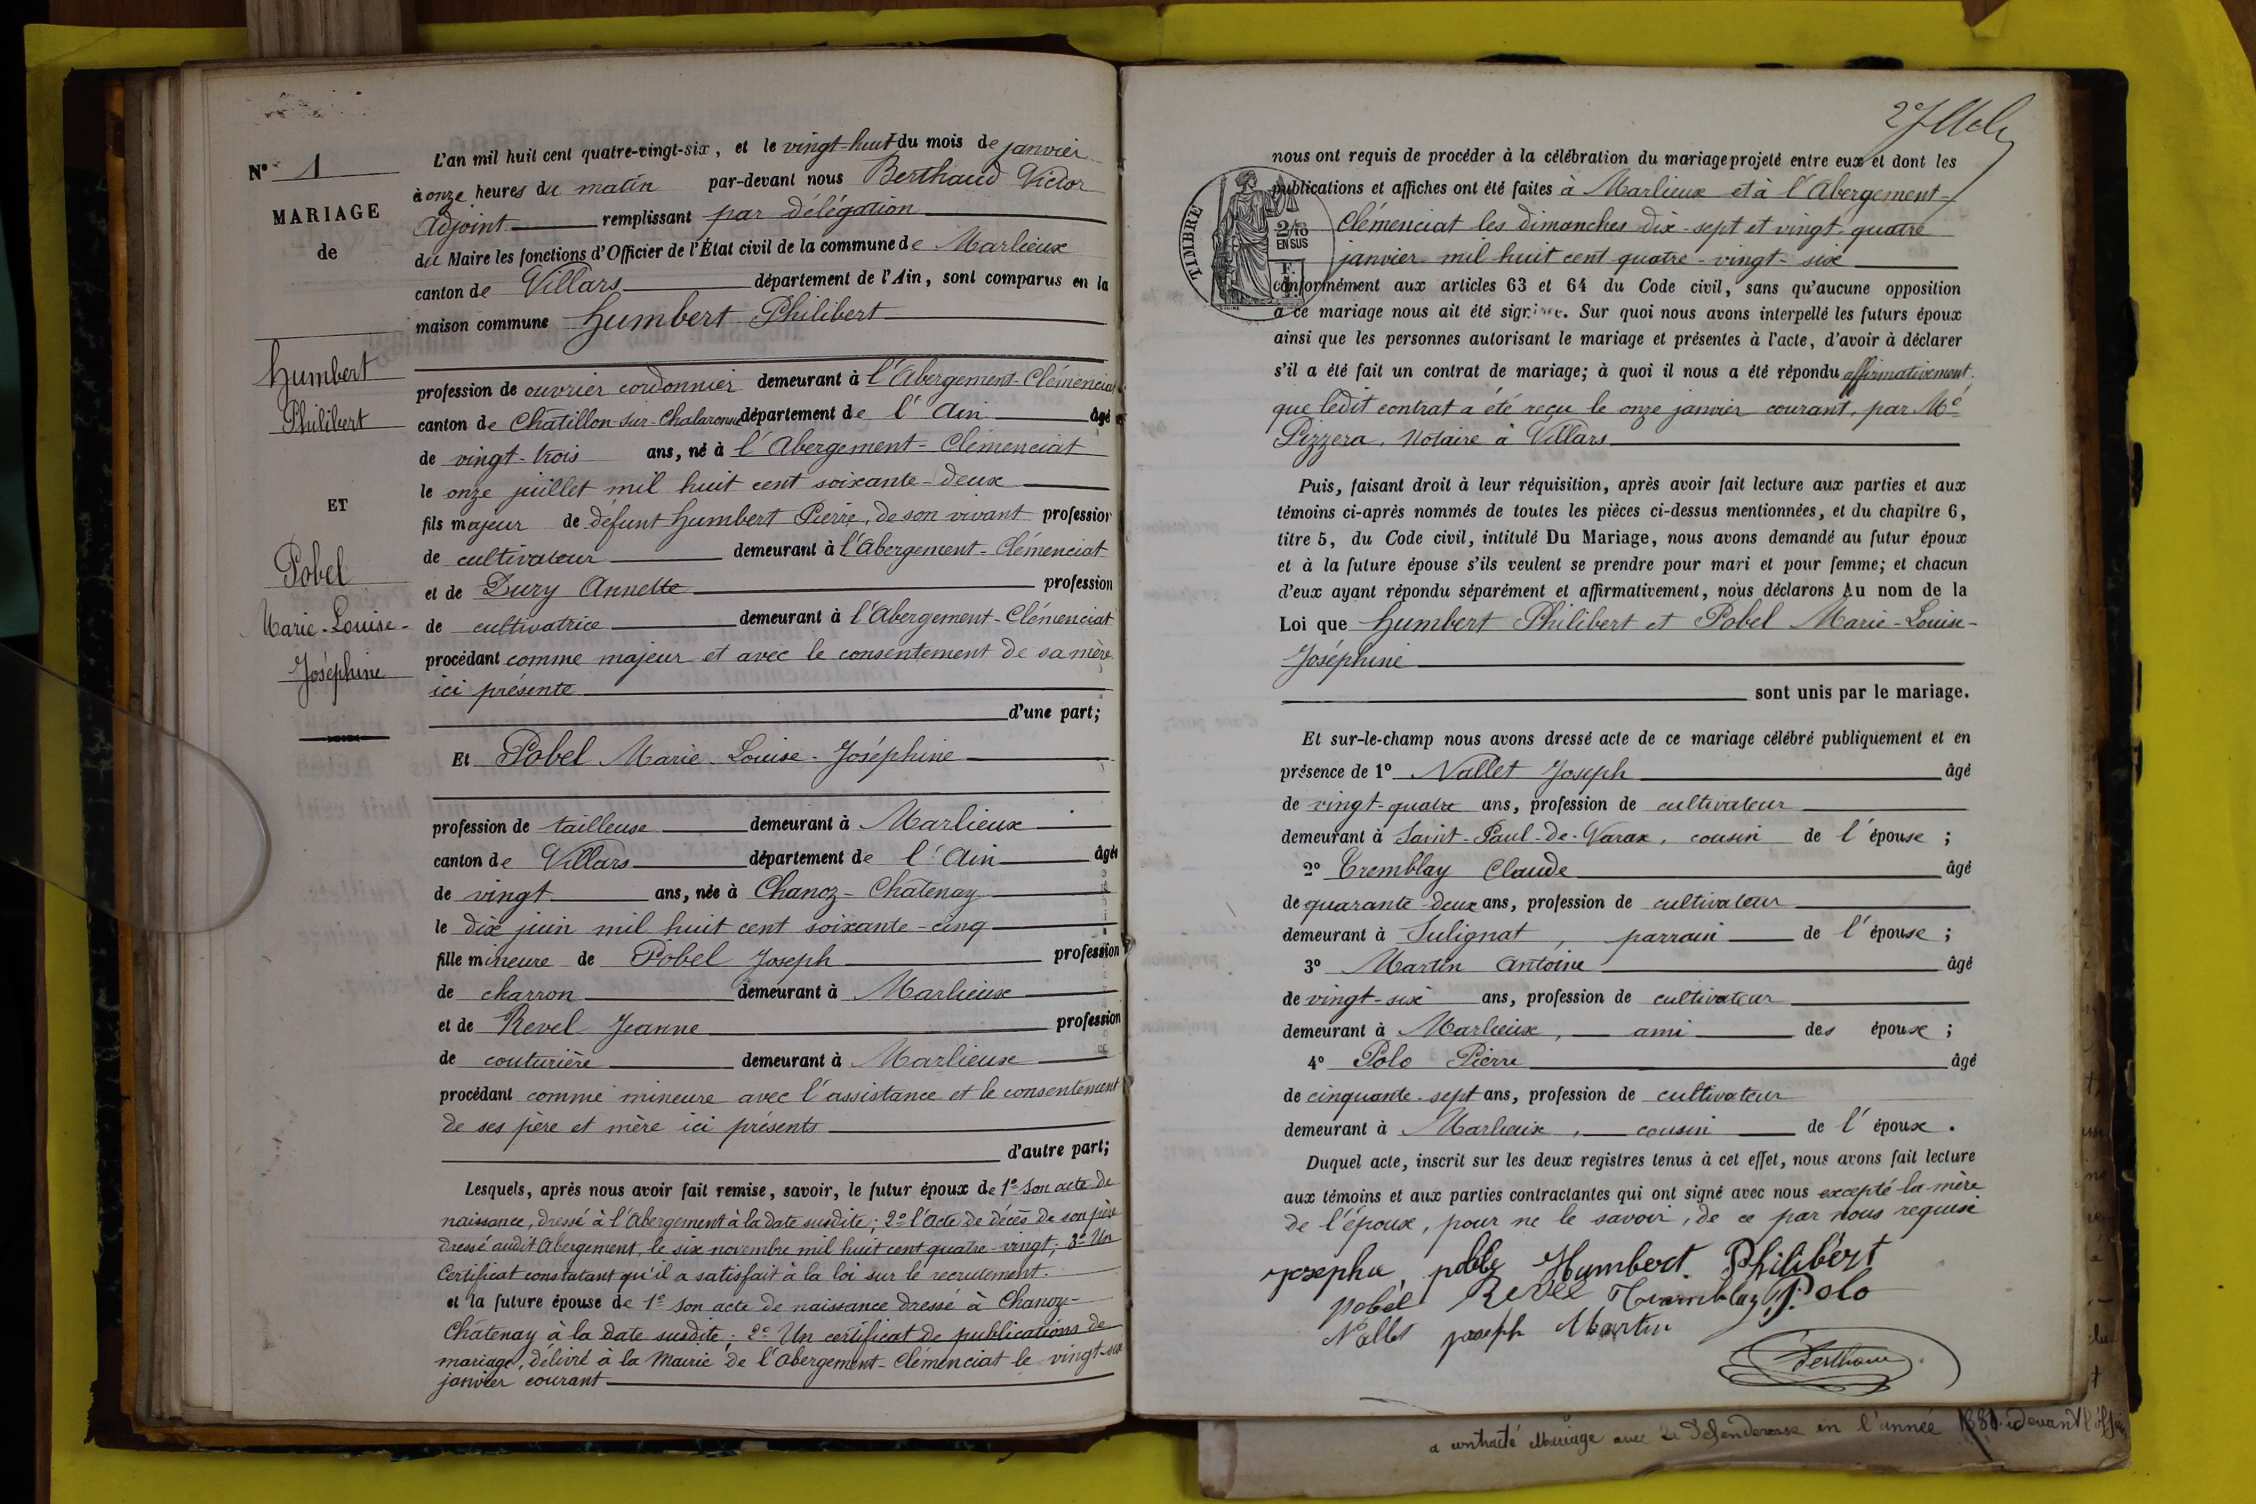 N° 1
MARIAGE
de
Humbert
Philibert
ET
Pobel
Marie-Louise-
Joséphine
L'an mil huit cent quatre-vingt-six, et le vingt-huit du mois de janvier
à onze heures du matin par-devant nous Berthaud Victor
Adjoint remplissant par délégation
du Maire les fonctions d'Officier de l'État civil de la commune de Marlieux
canton de Villars département de l'Ain, sont comparus en la
maison commune Humbert Philibert
profession de ouvrier cordonnier demeurant à l'Abergement-Clémenciat
canton de Châtillon-sur-Chalaronne département de l'Ain âgé
de vingt-trois ans, né à l'Abergement-Clémenciat
le onze juillet mil huit cent soixante-deux
fils majeur de défunt Humbert Pierre, de son vivant profession
de cultivateur demeurant à l'Abergement-Clémenciat
et de Dury Annette profession
de cultivatrice demeurant à l'Abergement-Clémenciat
procédant comme majeur et avec le consentement de sa mère
ici présente
d'une part;
Et Pobel Marie-Louise-Joséphine
profession de tailleuse demeurant à Marlieux
canton de Villars département de l'Ain âgée
de vingt ans, née à Chanoz-Châtenay
le dix juin mil huit cent soixante-cinq
fille mineure de Pobel Joseph profession
de charron demeurant à Marlieux
et de Revel Jeanne profession
de couturière demeurant à Marlieux
procédant comme mineure avec l'assistance et le consentement
de ses père et mère ici présents
d'autre part;
Lesquels, après nous avoir fait remise, savoir, le futur époux de 1° Son acte de
naissance, dressé à l'Abergement à la date susdite; 2° l'acte de décès de son père
dressé audit Abergement, le six novembre mil huit cent quatre-vingt; 3° Un
Certificat constatant qu'il a satisfait à la loi sur le recrutement.
et la future épouse de 1° Son acte de naissance dressé à Chanoz-
Châtenay à la date susdite; 2° Un certificat de publications de
mariage, délivré à la Mairie de l'Abergement-Clémenciat le vingt-six
janvier courant
TIMBRE
2/10
EN SUS
nous ont requis de procéder à la célébration du mariage projeté entre eux et dont les
publications et affiches ont été faites à Marlieux et à l'Abergement-
Clémenciat les dimanches dix-sept et vingt-quatre
janvier mil huit cent quatre-vingt-six
conformément aux articles 63 et 64 du Code civil, sans qu'aucune opposition
à ce mariage nous ait été signifiée. Sur quoi nous avons interpellé les futurs époux
ainsi que les personnes autorisant le mariage et présentes à l'acte, d'avoir à déclarer
s'il a été fait un contrat de mariage; à quoi il nous a été répondu affirmativement.
que ledit contrat a été reçu le onze janvier courant, par Me
Pizzera, Notaire à Villars
Puis, faisant droit à leur réquisition, après avoir fait lecture aux parties et aux
témoins ci-après nommés de toutes les pièces ci-dessus mentionnées, et du chapitre 6,
titre 5, du Code civil, intitulé Du Mariage, nous avons demandé au futur époux
et à la future épouse s'ils veulent se prendre pour mari et pour femme; et chacun
d'eux ayant répondu séparément et affirmativement, nous déclarons Au nom de la
Loi que Humbert Philibert et Pobel Marie-Louise-
Joséphine
sont unis par le mariage.
Et sur-le-champ nous avons dressé acte de ce mariage célébré publiquement et en
présence de 1° Nallet Joseph âgé
de vingt-quatre ans, profession de cultivateur
demeurant à Saint-Paul-de-Varax, cousin de l'épouse;
2° Tremblay Claude âgé
de quarante-deux ans, profession de cultivateur
demeurant à Sulignat, parrain de l'épouse;
3° Martin Antoine âgé
de vingt-six ans, profession de cultivateur
demeurant à Marlieux, ami des époux;
4° Polo Pierre âgé
de cinquante-sept ans, profession de cultivateur
demeurant à Marlieux, cousin de l'époux.
Duquel acte, inscrit sur les deux registres tenus à cet effet, nous avons fait lecture
aux témoins et aux parties contractantes qui ont signé avec nous excepté la mère
de l'époux, pour ne le savoir, de ce par nous requise
Humbert Philibert
pobel Revel Tremblay P. Polo
Nallet joseph Martin
Berthaud
a contracté Mariage avec la Défenderesse en l'année devant